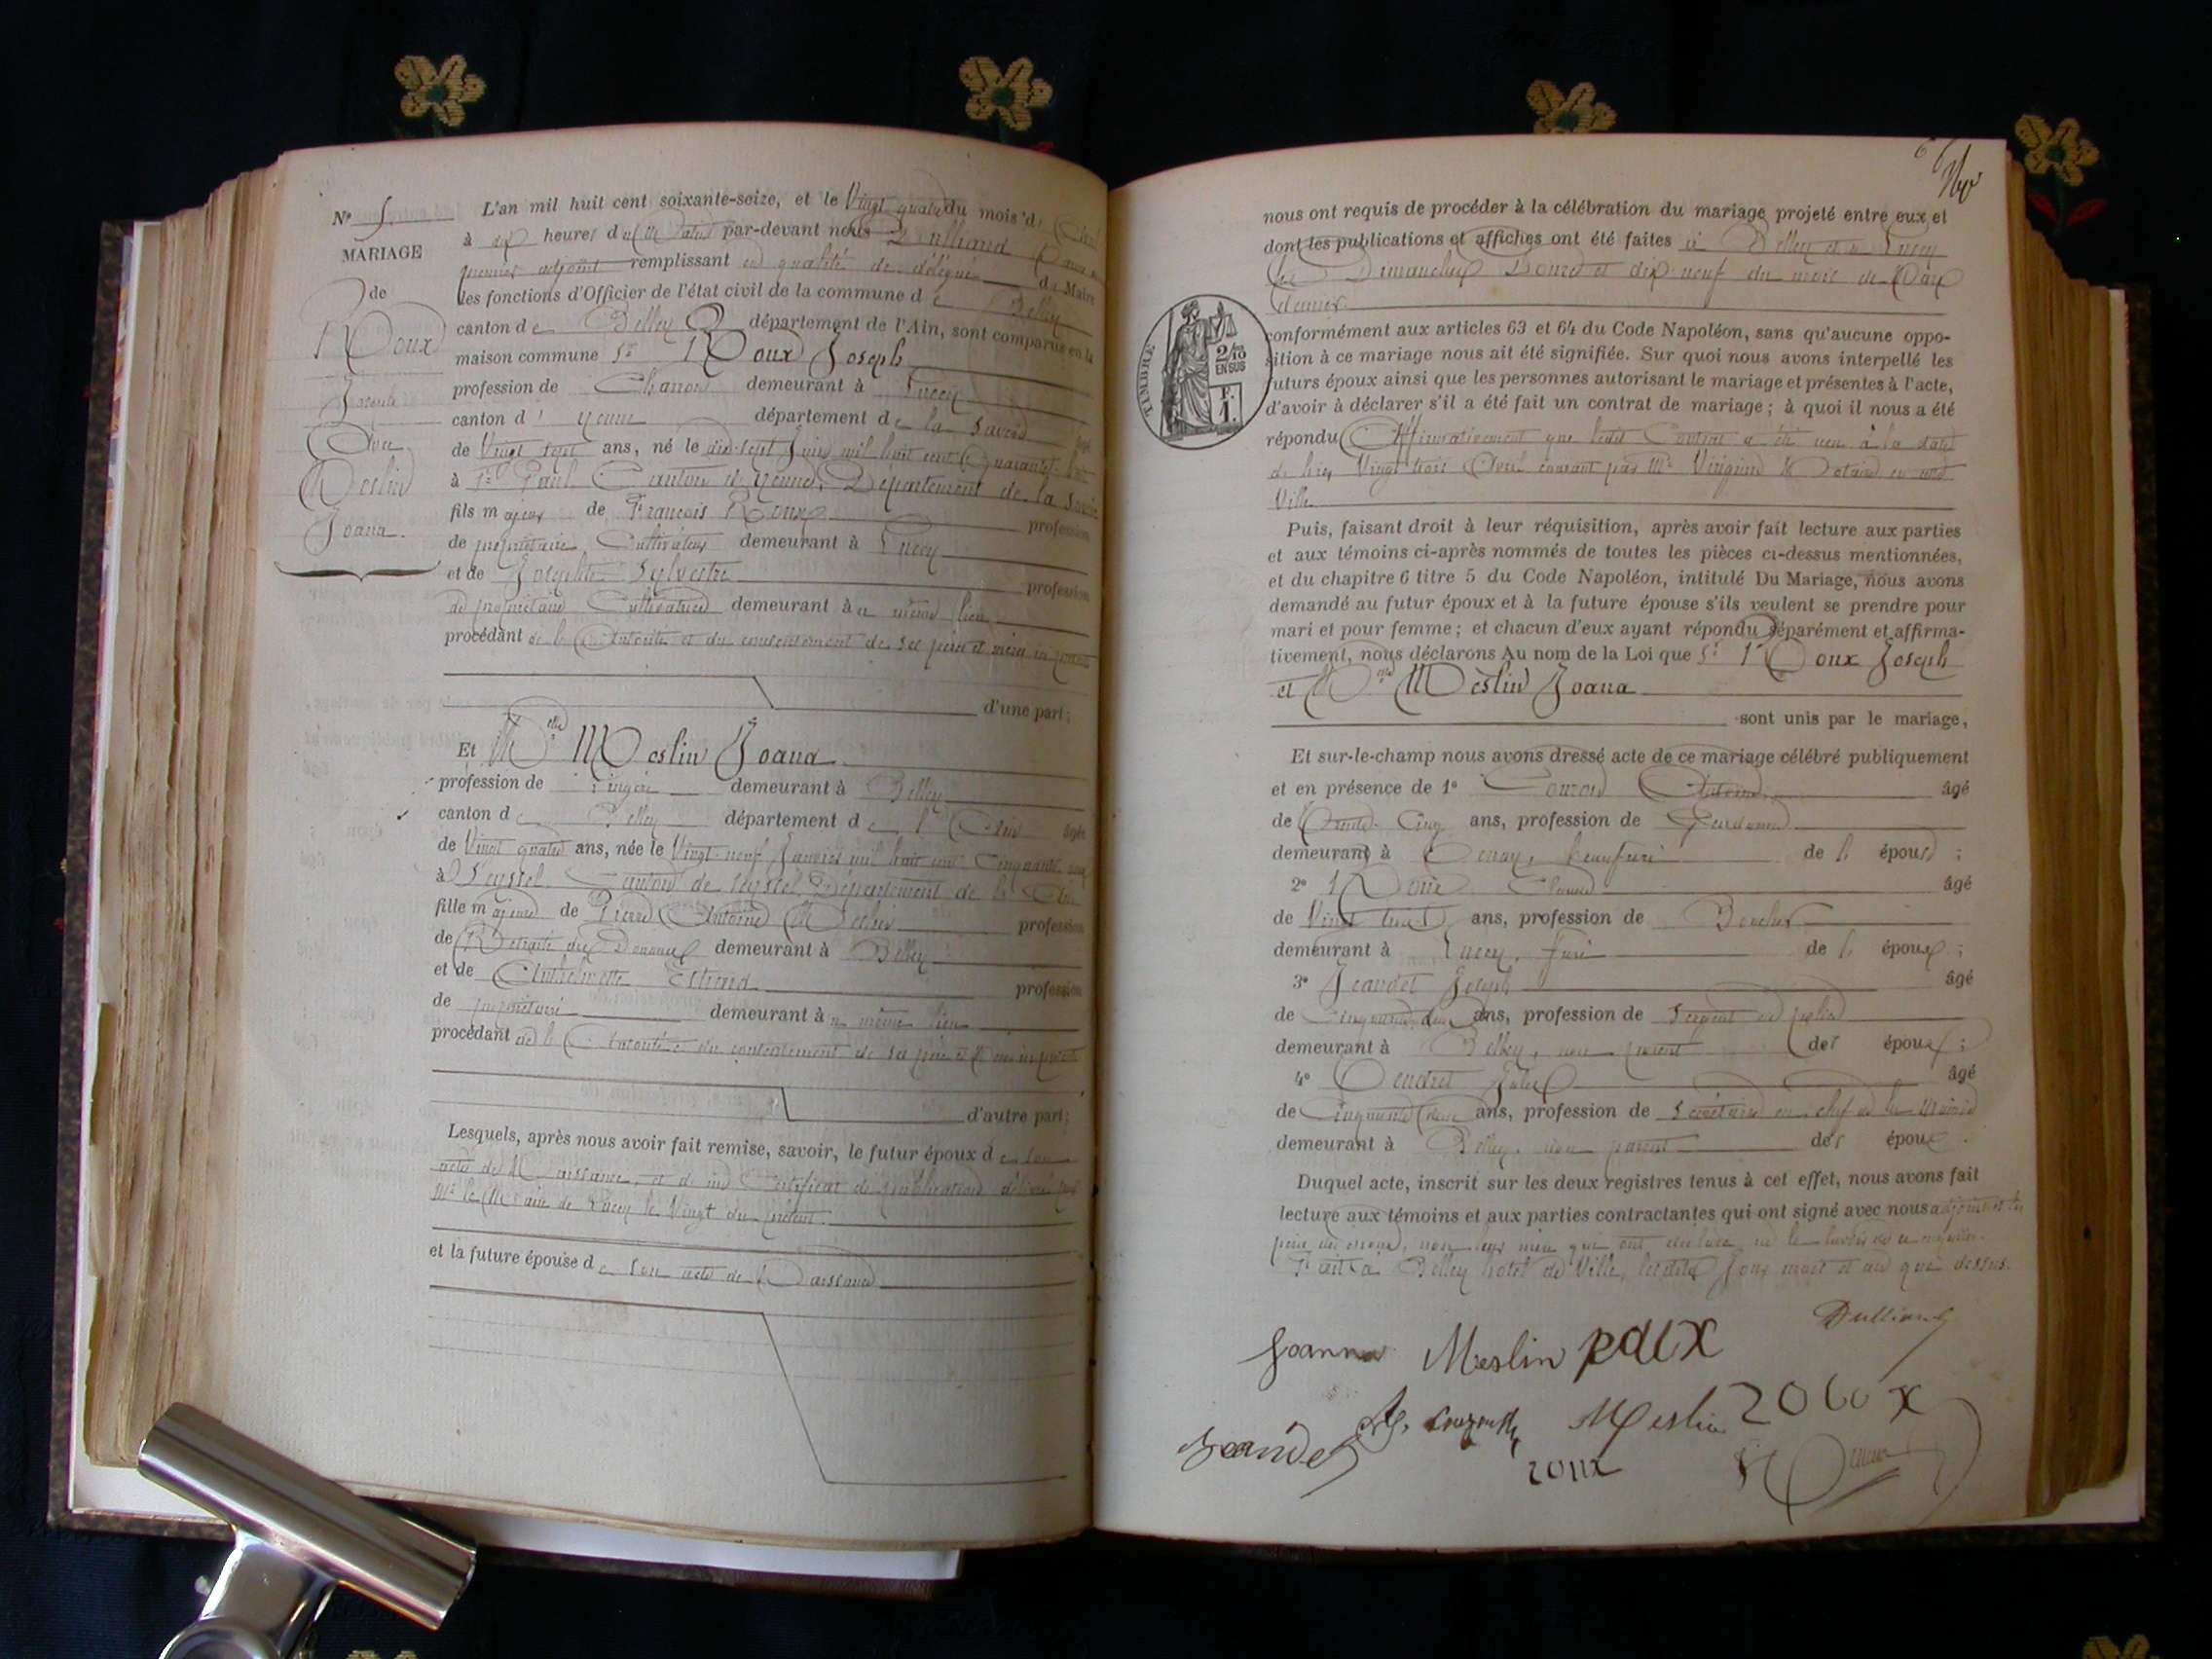 N° 5
MARIAGE
de
Roux
Joseph
Avec
Meslin
Joana.
L'an mil huit cent soixante-seize, et le Vingt quatre du mois d'
à dix heures du Matin par-devant nous
premier adjoint remplissant en qualité de délégué du Maire
les fonctions d'Officier de l'état civil de la commune de Belley
canton de Belley département de l'Ain, sont comparus en la
maison commune Sr Roux Joseph
profession de Charron demeurant à Lucey
canton d' Yenne département de la Savoie
de Vingt sept ans, né le dix-sept Juin mil huit cent Quarante-huit
à St Paul Canton d'Yenne, Département de la Savoie
fils majeur de François Roux profession
de propriétaire Cultivateur demeurant à Lucey
et de Josephte Sylvestre profession
de propriétaire Cultivatrice demeurant au même lieu
procédant de l'Autorité et du consentement de ses père et mère ici présents
d'une part;
Et Melle Meslin Joana
profession de Lingère demeurant à Belley
canton de Belley département de l'Ain âgée
de Vingt quatre ans, née le Vingt-neuf Janvier mil huit cent Cinquante-
à Seyssel Canton de Seyssel Département de l'Ain
fille majeure de Pierre Antoine Meslin profession
de Retraité des Douanes demeurant à Belley
et de Anthelmette profession
de propriétaire demeurant au même lieu
procédant de l'Autorité et du consentement de ses père et mère ici présents
d'autre part;
Lesquels, après nous avoir fait remise, savoir, le futur époux de son
acte de Naissance, et de un Certificat de publication délivré par
Mr le Maire de Lucey le Vingt du présent.
et la future épouse de son acte de Naissance
nous ont requis de procéder à la célébration du mariage projeté entre eux et
dont les publications et affiches ont été faites à Belley et à Lucey
les Dimanches Douze et dix-neuf du mois de Mars
dernier.
TIMBRE
2/10
EN SUS
F.
1
conformément aux articles 63 et 64 du Code Napoléon, sans qu'aucune oppo-
sition à ce mariage nous ait été signifiée. Sur quoi nous avons interpellé les
futurs époux ainsi que les personnes autorisant le mariage et présentes à l'acte,
d'avoir à déclarer s'il a été fait un contrat de mariage; à quoi il nous a été
répondu Affirmativement que ledit Contrat a été reçu à la date
de hier Vingt trois Avril courant par Me Notaire en cette
Ville
Puis, faisant droit à leur réquisition, après avoir fait lecture aux parties
et aux témoins ci-après nommés de toutes les pièces ci-dessus mentionnées,
et du chapitre 6 titre 5 du Code Napoléon, intitulé Du Mariage, nous avons
demandé au futur époux et à la future épouse s'ils veulent se prendre pour
mari et pour femme; et chacun d'eux ayant répondu séparément et affirma-
tivement, nous déclarons Au nom de la Loi que Sr Roux Joseph
et Melle Meslin Joana
sont unis par le mariage,
Et sur-le-champ nous avons dressé acte de ce mariage célébré publiquement
et en présence de 1° Antoine âgé
de Trente Cinq ans, profession de Gendarme
demeurant à Tenay, beaufrère de l'épouse;
2° Roux Claude âgé
de Vingt ans, profession de Boucher
demeurant à Lucey, frère de l'époux;
3° Jeandet Joseph âgé
de Cinquante deux ans, profession de Sergent de police
demeurant à Belley, non parent des époux;
4° Jules âgé
de Cinquante deux ans, profession de Secrétaire en chef de la Mairie
demeurant à Belley, non parent des époux.
Duquel acte, inscrit sur les deux registres tenus à cet effet, nous avons fait
lecture aux témoins et aux parties contractantes qui ont signé avec nous adjoint et les
pères des époux, non leurs mères qui ont déclaré ne le savoir de ce requises.
Fait à Belley hotel de Ville, lesdits Jour mois et an que dessus.
Joanna Meslin roux
Meslin roux
Jeandet
roux